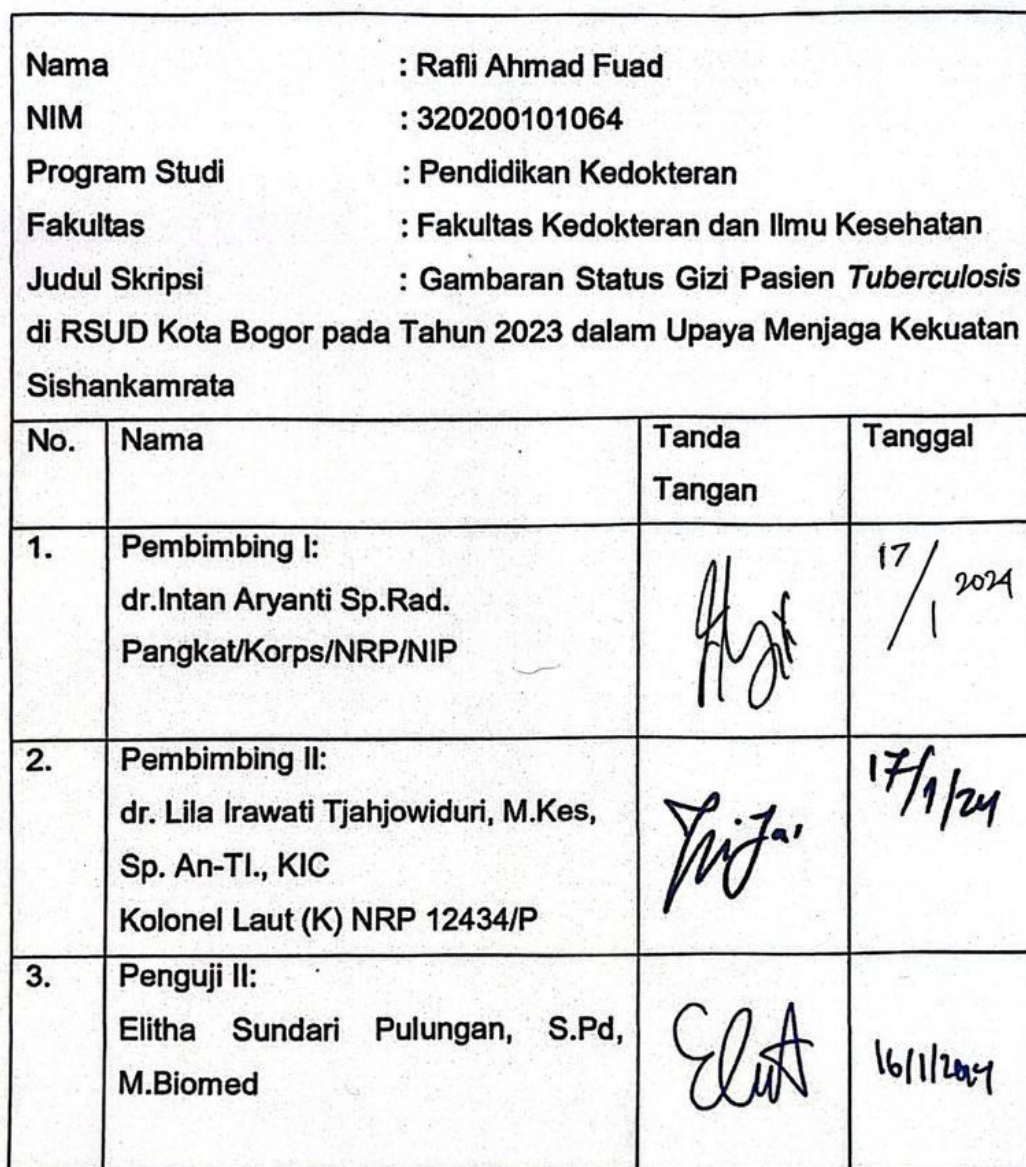 Nama : Rafli Ahmad Fuad
NIM : 320200101064
Program Studi : Pendidikan Kedokteran
Fakultas : Fakultas Kedokteran dan Ilmu Kesehatan
Judul Skripsi : Gambaran Status Gizi Pasien Tuberculosis
di RSUD Kota Bogor pada Tahun 2023 dalam Upaya Menjaga Kekuatan
Sishankamrata
No. Nama Tanda Tanggal
Tangan
1. Pembimbing I:
dr.Intan Aryanti Sp.Rad.
Pangkat/Korps/NRP/NIP
17/1 2024
2. Pembimbing II:
dr. Lila Irawati Tjahjowiduri, M.Kes,
Sp. An-TI., KIC
Kolonel Laut (K) NRP 12434/P
17/1/24
3. Penguji II:
Elitha Sundari Pulungan, S.Pd,
M.Biomed
16/1/2024